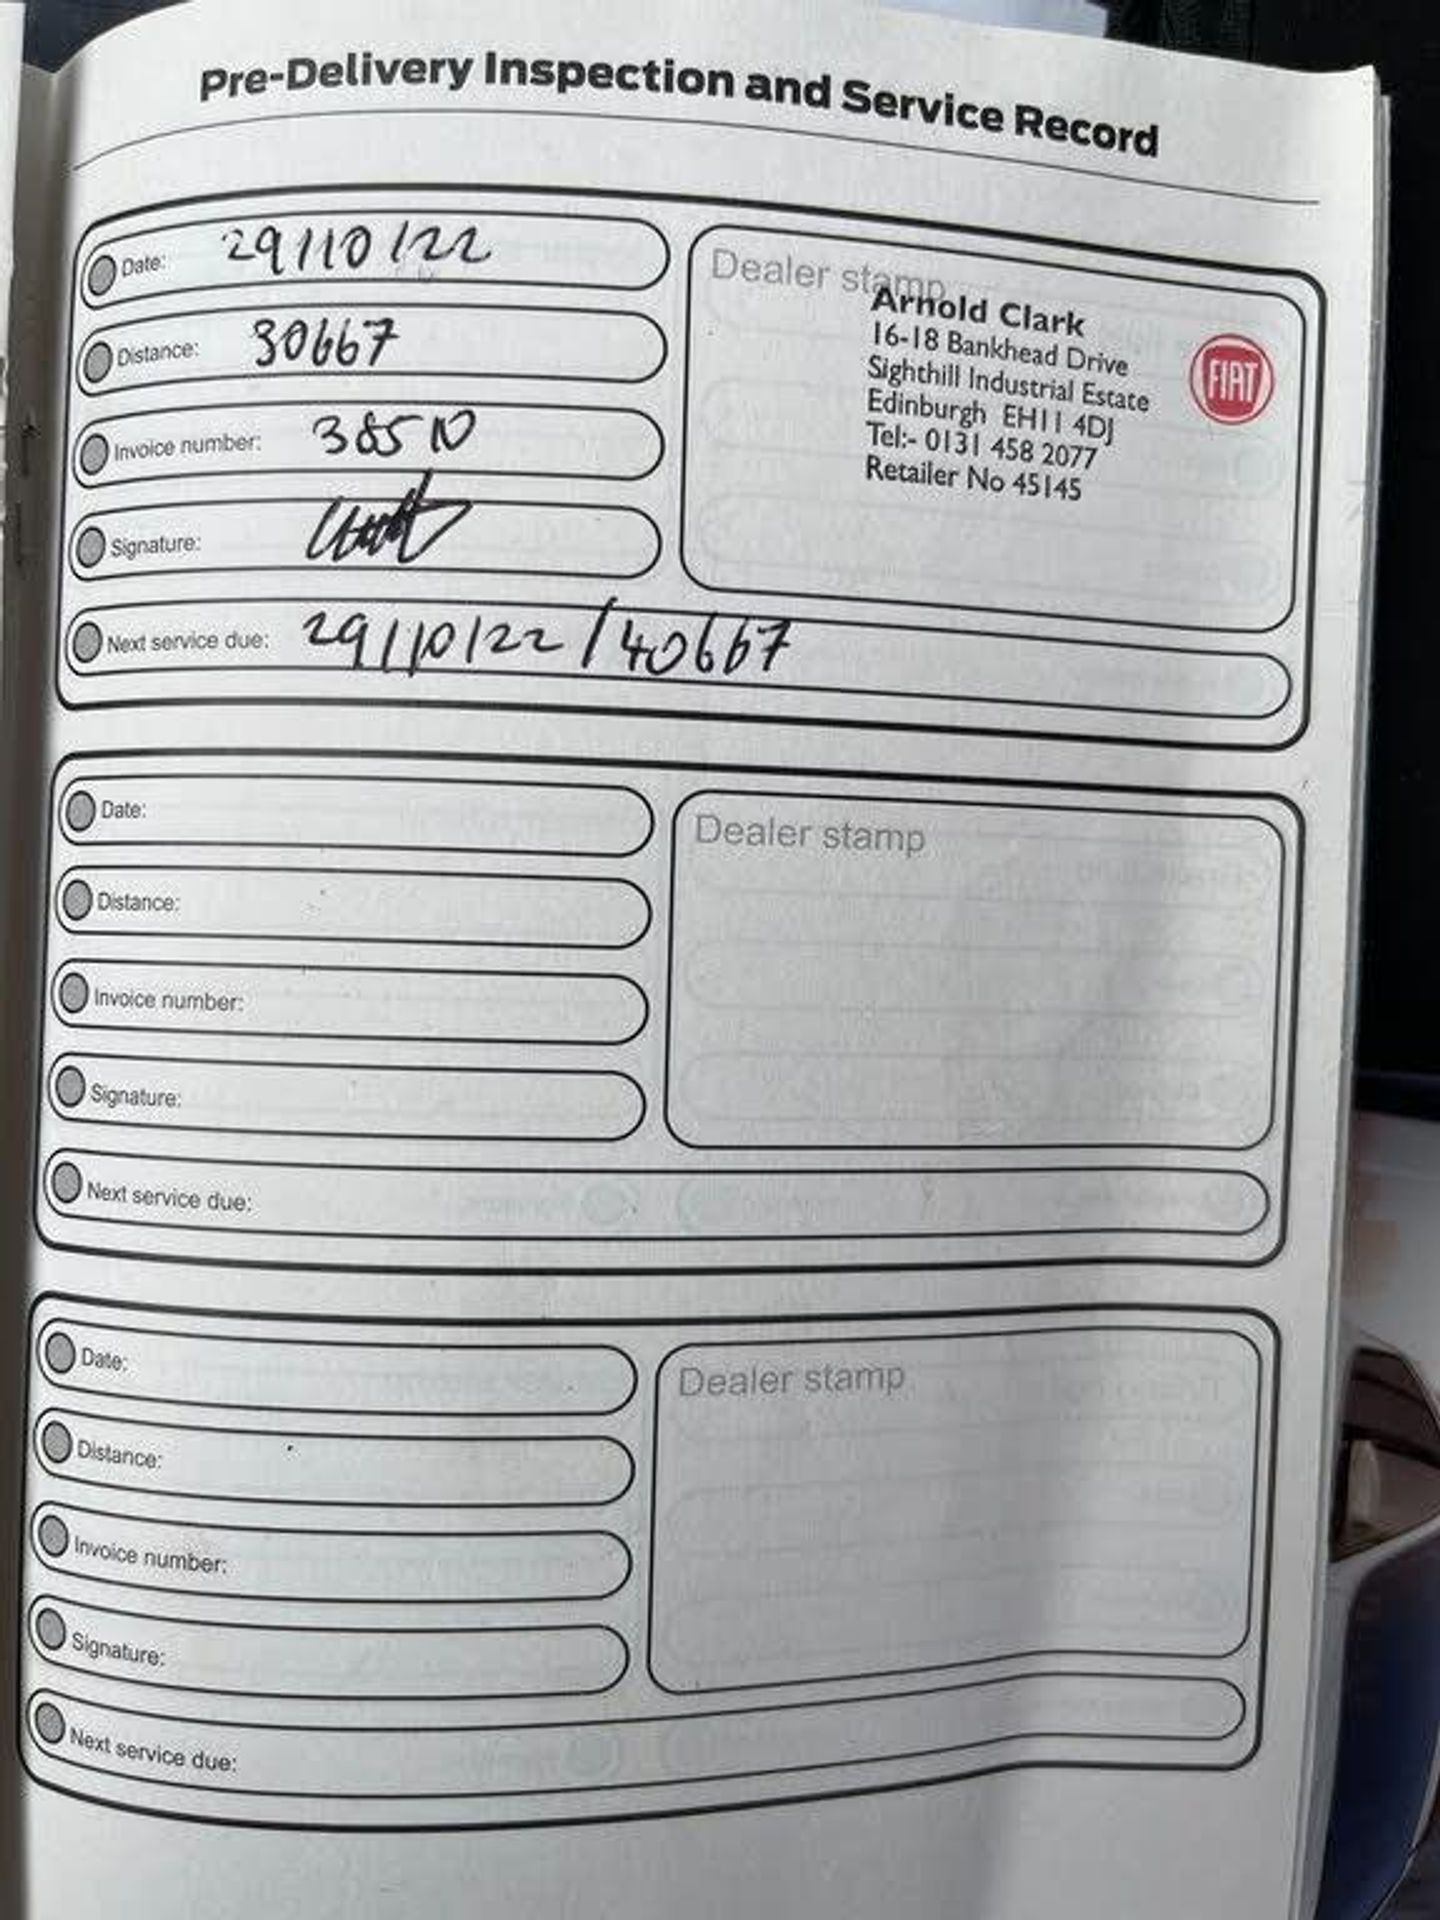 Pre-Delivery Inspection and Service Record
Date: 29/10/22
Distance: 30667
Invoice number: 38510
Signature:
Next service due: 29/10/22 / 40667
Dealer stamp
Arnold Clark
16-18 Bankhead Drive
Sighthill Industrial Estate
Edinburgh EH11 4DJ
Tel:- 0131 458 2077
Retailer No 45145
FIAT
Date:
Distance:
Invoice number:
Signature:
Next service due:
Dealer stamp
Date:
Distance:
Invoice number:
Signature:
Next service due:
Dealer stamp